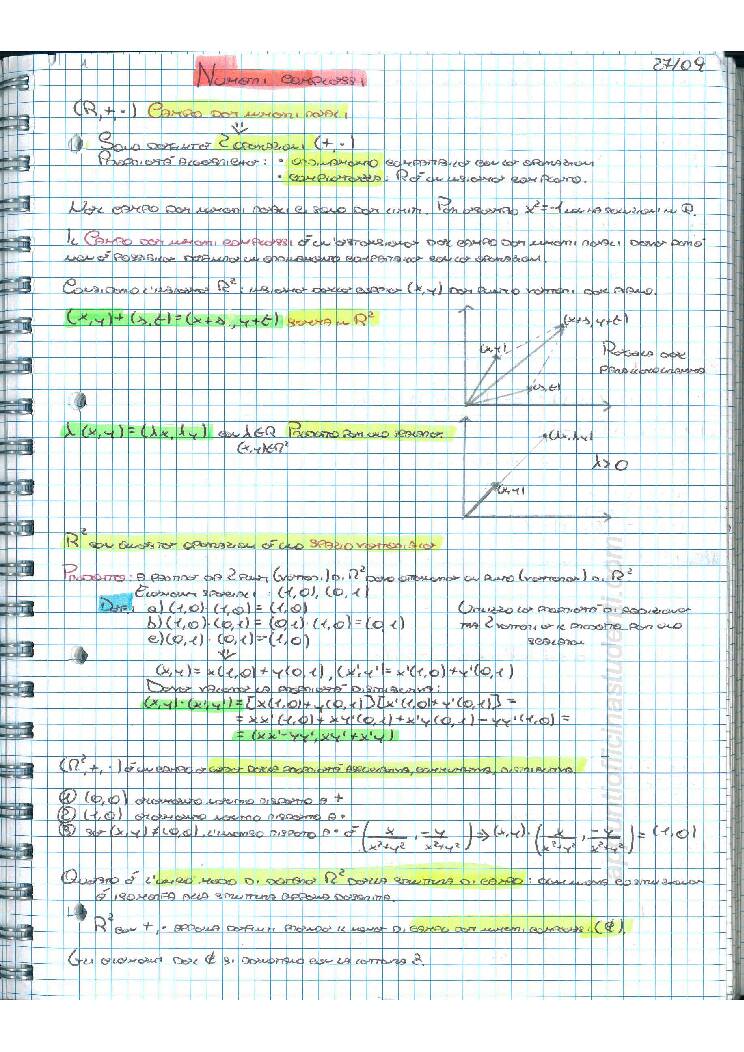 27/09
NUMERI COMPLESSI
(R, +, ·) CAMPO DEI NUMERI REALI
⇓
SONO DEFINITE 2 OPERAZIONI (+, ·)
PROPRIETÀ ALGEBRICHE: • ORDINAMENTO COMPATIBILE CON LE OPERAZIONI
• COMPLETEZZA: R È UN INSIEME COMPLETO.
NEL CAMPO DEI NUMERI REALI CI SONO DEI LIMITI. PER ESEMPIO x²=-1 NON HA SOLUZIONI IN R.
IL CAMPO DEI NUMERI COMPLESSI È UN'ESTENSIONE DEL CAMPO DEI NUMERI REALI DOVE PERÒ
NON È POSSIBILE DEFINIRE UN ORDINAMENTO COMPATIBILE CON LE OPERAZIONI.
CONSIDERO L'INSIEME R²: INSIEME DELLE COPPIE (x,y) DEI PUNTI VETTORI DEL PIANO.
(x,y)+(s,t)=(x+s, y+t) SOMMA IN R²
(x+s, y+t)
(x,y)
(s,t)
REGOLA DEL
PARALLELOGRAMMA
λ(x,y)=(λx, λy) CON λ∈R PRODOTTO PER UNO SCALARE.
(x,y)∈R²
(λx, λy)
(x,y)
λ>0
R² CON QUESTE OPERAZIONI È UNO SPAZIO VETTORIALE
PRODOTTO: A PARTIRE DA 2 PUNTI (VETTORI) DI R² DEVO OTTENERE UN PUNTO (VETTORE) DI R²
ELEMENTI SPECIALI: (1,0), (0,1)
DEF: a) (1,0)·(1,0) = (1,0)
b) (1,0)·(0,1) = (0,1)·(1,0) = (0,1)
c) (0,1)·(0,1) = -(1,0)
UTILIZZO LE PROPRIETÀ DI ADDIZIONE
TRA 2 VETTORI E PRODOTTO PER UNO
SCALARE
⇓
(x,y) = x(1,0)+y(0,1), (x',y')= x'(1,0)+y'(0,1)
DEVE VALERE LA PROPRIETÀ DISTRIBUTIVA:
(x,y)·(x',y') = [x(1,0)+y(0,1)][x'(1,0)+y'(0,1)] =
= xx'(1,0)+xy'(0,1)+x'y(0,1)-yy'(1,0) =
= (xx'-yy', xy'+x'y)
(R², +, ·) È UN CAMPO, E GODE DELLE PROPRIETÀ ASSOCIATIVA, COMMUTATIVA, DISTRIBUTIVA
① (0,0) ELEMENTO NEUTRO RISPETTO A +
② (1,0) ELEMENTO NEUTRO RISPETTO A •
③ SE (x,y)≠(0,0), L'INVERSO RISPETTO A • È (x/(x²+y²), -y/(x²+y²)) ⇒ (x,y)·(x/(x²+y²), -y/(x²+y²)) = (1,0)
QUESTO È L'UNICO MODO DI DOTARE R² DELLA STRUTTURA DI CAMPO: OGNI NUOVA COSTRUZIONE
È ISOMORFA ALLA STRUTTURA APPENA DEFINITA.
R² CON +, • APPENA DEFINITI PRENDE IL NOME DI CAMPO DEI NUMERI COMPLESSI (ℂ).
GLI ELEMENTI DEL ℂ SI DENOTANO CON LA LETTERA Z.
appuntiofficinastudenti.com